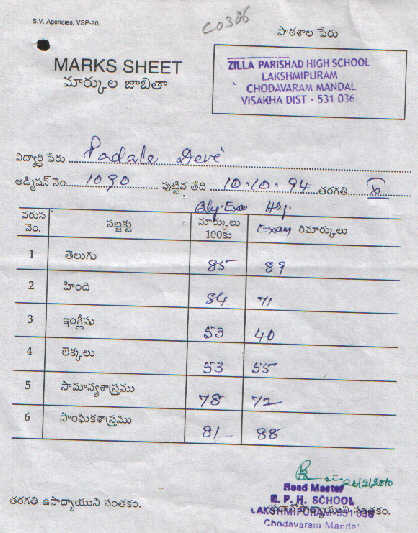 S.V. Agencies, VSP-16.
C0306
పాఠశాల పేరు
MARKS SHEET
మార్కుల జాబితా
ZILLA PARISHAD HIGH SCHOOL
LAKSHMIPURAM
CHODAVARAM MANDAL
VISAKHA DIST - 531 036
విద్యార్థి పేరు Padala Devi
అడ్మిషన్ నెం. 1090 పుట్టిన తేది 10-10-94 తరగతి
వరుస నెం. సబ్జెక్టు మార్కులు 100కు రిమార్కులు
1 తెలుగు 85 89
2 హింది 84 71
3 ఇంగ్లీషు 53 40
4 లెక్కలు 53 55
5 సామాన్యశాస్త్రము 78 72
6 సాంఘికశాస్త్రము 81 88
Head Master
Z. P. H. SCHOOL
తరగతి ఉపాధ్యాయుని సంతకం.
LAKSHMIPURAM-531 036
Chodavaram Mandal